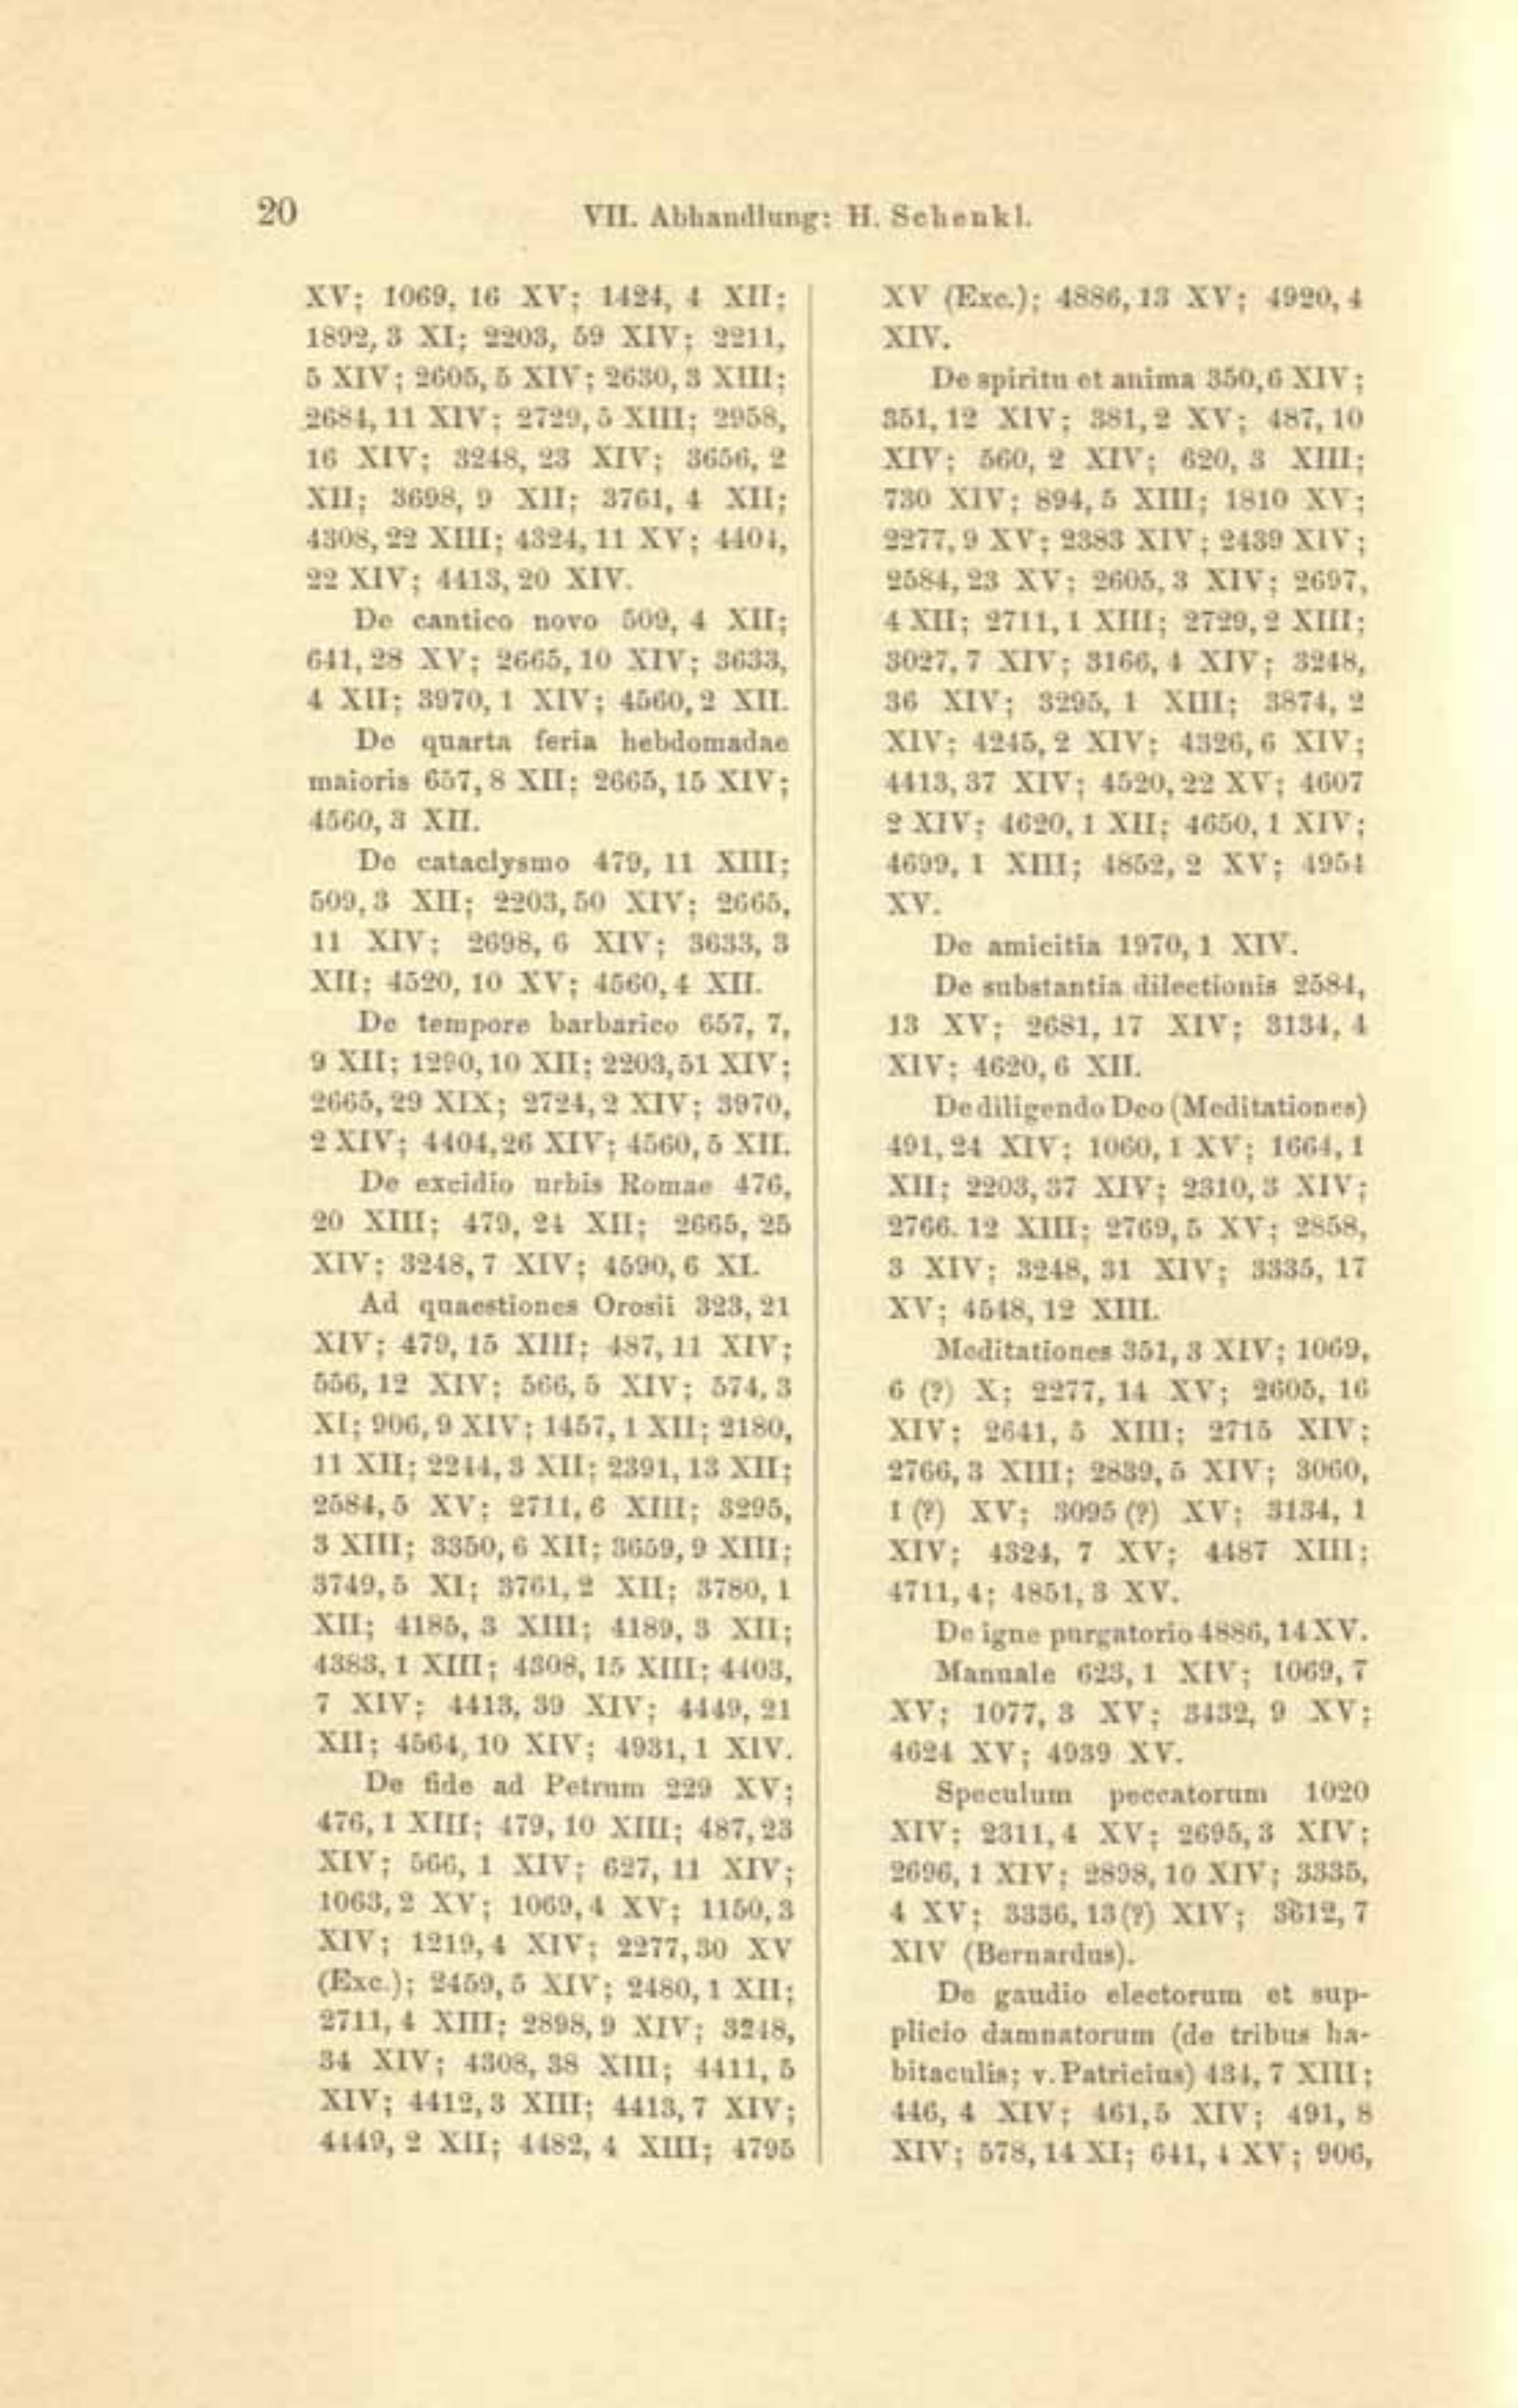 20
VII. Abhandlung: H. Schenkl.
XV; 1069, 16 XV; 1424, 4 XII;
1892, 3 XI; 2203, 59 XIV; 2211,
5 XIV; 2605, 5 XIV; 2630, 3 XIII;
2684, 11 XIV; 2729, 5 XIII; 2958,
16 XIV; 3248, 23 XIV; 3656, 2
XII; 3698, 9 XII; 3761, 4 XII;
4308, 22 XIII; 4324, 11 XV; 4404,
22 XIV; 4413, 20 XIV.
De cantico novo 509, 4 XII;
641, 28 XV; 2665, 10 XIV; 3633,
4 XII; 3970, 1 XIV; 4560, 2 XII.
De quarta feria hebdomadae
maioris 657, 8 XII; 2665, 15 XIV;
4560, 3 XII.
De cataclysmo 479, 11 XIII;
509, 3 XII; 2203, 50 XIV; 2665,
11 XIV; 2698, 6 XIV; 3633, 3
XII; 4520, 10 XV; 4560, 4 XII.
De tempore barbarico 657, 7,
9 XII; 1290, 10 XII; 2203, 51 XIV;
2665, 29 XIX; 2724, 2 XIV; 3970,
2 XIV; 4404, 26 XIV; 4560, 5 XII.
De excidio urbis Romae 476,
20 XIII; 479, 24 XII; 2665, 25
XIV; 3248, 7 XIV; 4590, 6 XI.
Ad quaestiones Orosii 323, 21
XIV; 479, 15 XIII; 487, 11 XIV;
556, 12 XIV; 566, 5 XIV; 574, 3
XI; 906, 9 XIV; 1457, 1 XII; 2180,
11 XII; 2244, 3 XII; 2391, 13 XII;
2584, 5 XV; 2711, 6 XIII; 3295,
3 XIII; 3350, 6 XII; 3659, 9 XIII;
3749, 5 XI; 3761, 2 XII; 3780, 1
XII; 4185, 3 XIII; 4189, 3 XII;
4383, 1 XIII; 4308, 15 XIII; 4403,
7 XIV; 4413, 39 XIV; 4449, 21
XII; 4564, 10 XIV; 4931, 1 XIV.
De fide ad Petrum 229 XV;
476, 1 XIII; 479, 10 XIII; 487, 23
XIV; 566, 1 XIV; 627, 11 XIV;
1063, 2 XV; 1069, 4 XV; 1150, 3
XIV; 1219, 4 XIV; 2277, 30 XV
(Exc.); 2459, 5 XIV; 2480, 1 XII;
2711, 4 XIII; 2898, 9 XIV; 3248,
34 XIV; 4308, 38 XIII; 4411, 5
XIV; 4412, 3 XIII; 4413, 7 XIV;
4449, 2 XII; 4482, 4 XIII; 4795
XV (Exc.); 4886, 13 XV; 4920, 4
XIV.
De spiritu et anima 350, 6 XIV;
351, 12 XIV; 381, 2 XV; 487, 10
XIV; 560, 2 XIV; 620, 3 XIII;
730 XIV; 894, 5 XIII; 1810 XV;
2277, 9 XV; 2383 XIV; 2439 XIV;
2584, 23 XV; 2605, 3 XIV; 2697,
4 XII; 2711, 1 XIII; 2729, 2 XIII;
3027, 7 XIV; 3166, 4 XIV; 3248,
36 XIV; 3295, 1 XIII; 3874, 2
XIV; 4245, 2 XIV; 4326, 6 XIV;
4413, 37 XIV; 4520, 22 XV; 4607
2 XIV; 4620, 1 XII; 4650, 1 XIV;
4699, 1 XIII; 4852, 2 XV; 4954
XV.
De amicitia 1970, 1 XIV.
De substantia dilectionis 2584,
13 XV; 2681, 17 XIV; 3134, 4
XIV; 4620, 6 XII.
De diligendo Deo (Meditationes)
491, 24 XIV; 1060, 1 XV; 1664, 1
XII; 2203, 37 XIV; 2310, 3 XIV;
2766. 12 XIII; 2769, 5 XV; 2858,
3 XIV; 3248, 31 XIV; 3335, 17
XV; 4548, 12 XIII.
Meditationes 351, 3 XIV; 1069,
6 (?) X; 2277, 14 XV; 2605, 16
XIV; 2641, 5 XIII; 2715 XIV;
2766, 3 XIII; 2839, 5 XIV; 3060,
1 (?) XV; 3095 (?) XV; 3134, 1
XIV; 4324, 7 XV; 4487 XIII;
4711, 4; 4851, 3 XV.
De igne purgatorio 4886, 14 XV.
Manuale 623, 1 XIV; 1069, 7
XV; 1077, 3 XV; 3432, 9 XV;
4624 XV; 4939 XV.
Speculum peccatorum 1020
XIV; 2311, 4 XV; 2695, 3 XIV;
2696, 1 XIV; 2898, 10 XIV; 3335,
4 XV; 3336, 13 (?) XIV; 3612, 7
XIV (Bernardus).
De gaudio electorum et sup-
plicio damnatorum (de tribus ha-
bitaculis; v. Patricius) 434, 7 XIII;
446, 4 XIV; 461, 5 XIV; 491, 8
XIV; 578, 14 XI; 641, 4 XV; 906,